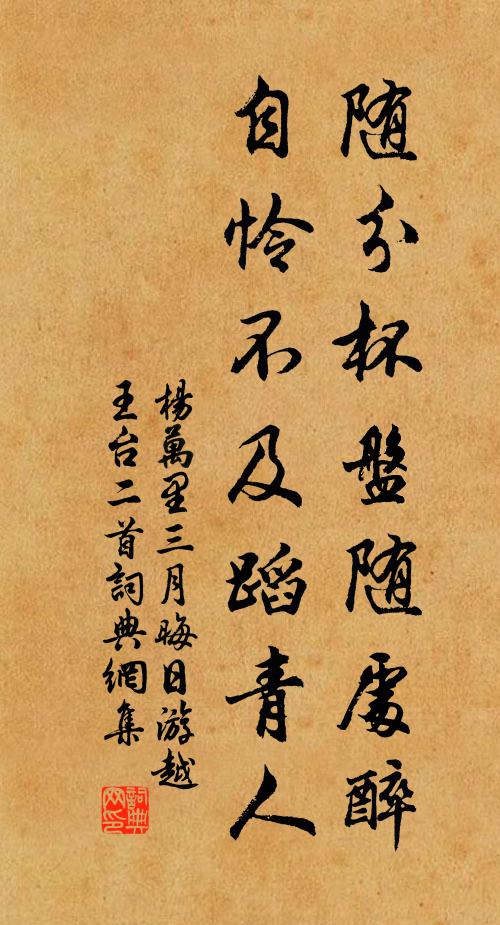 随分杯盤随處醉
自怜不及蹈青人
楊萬里三月晦日游越
王台二首詞典網集
詞典网印